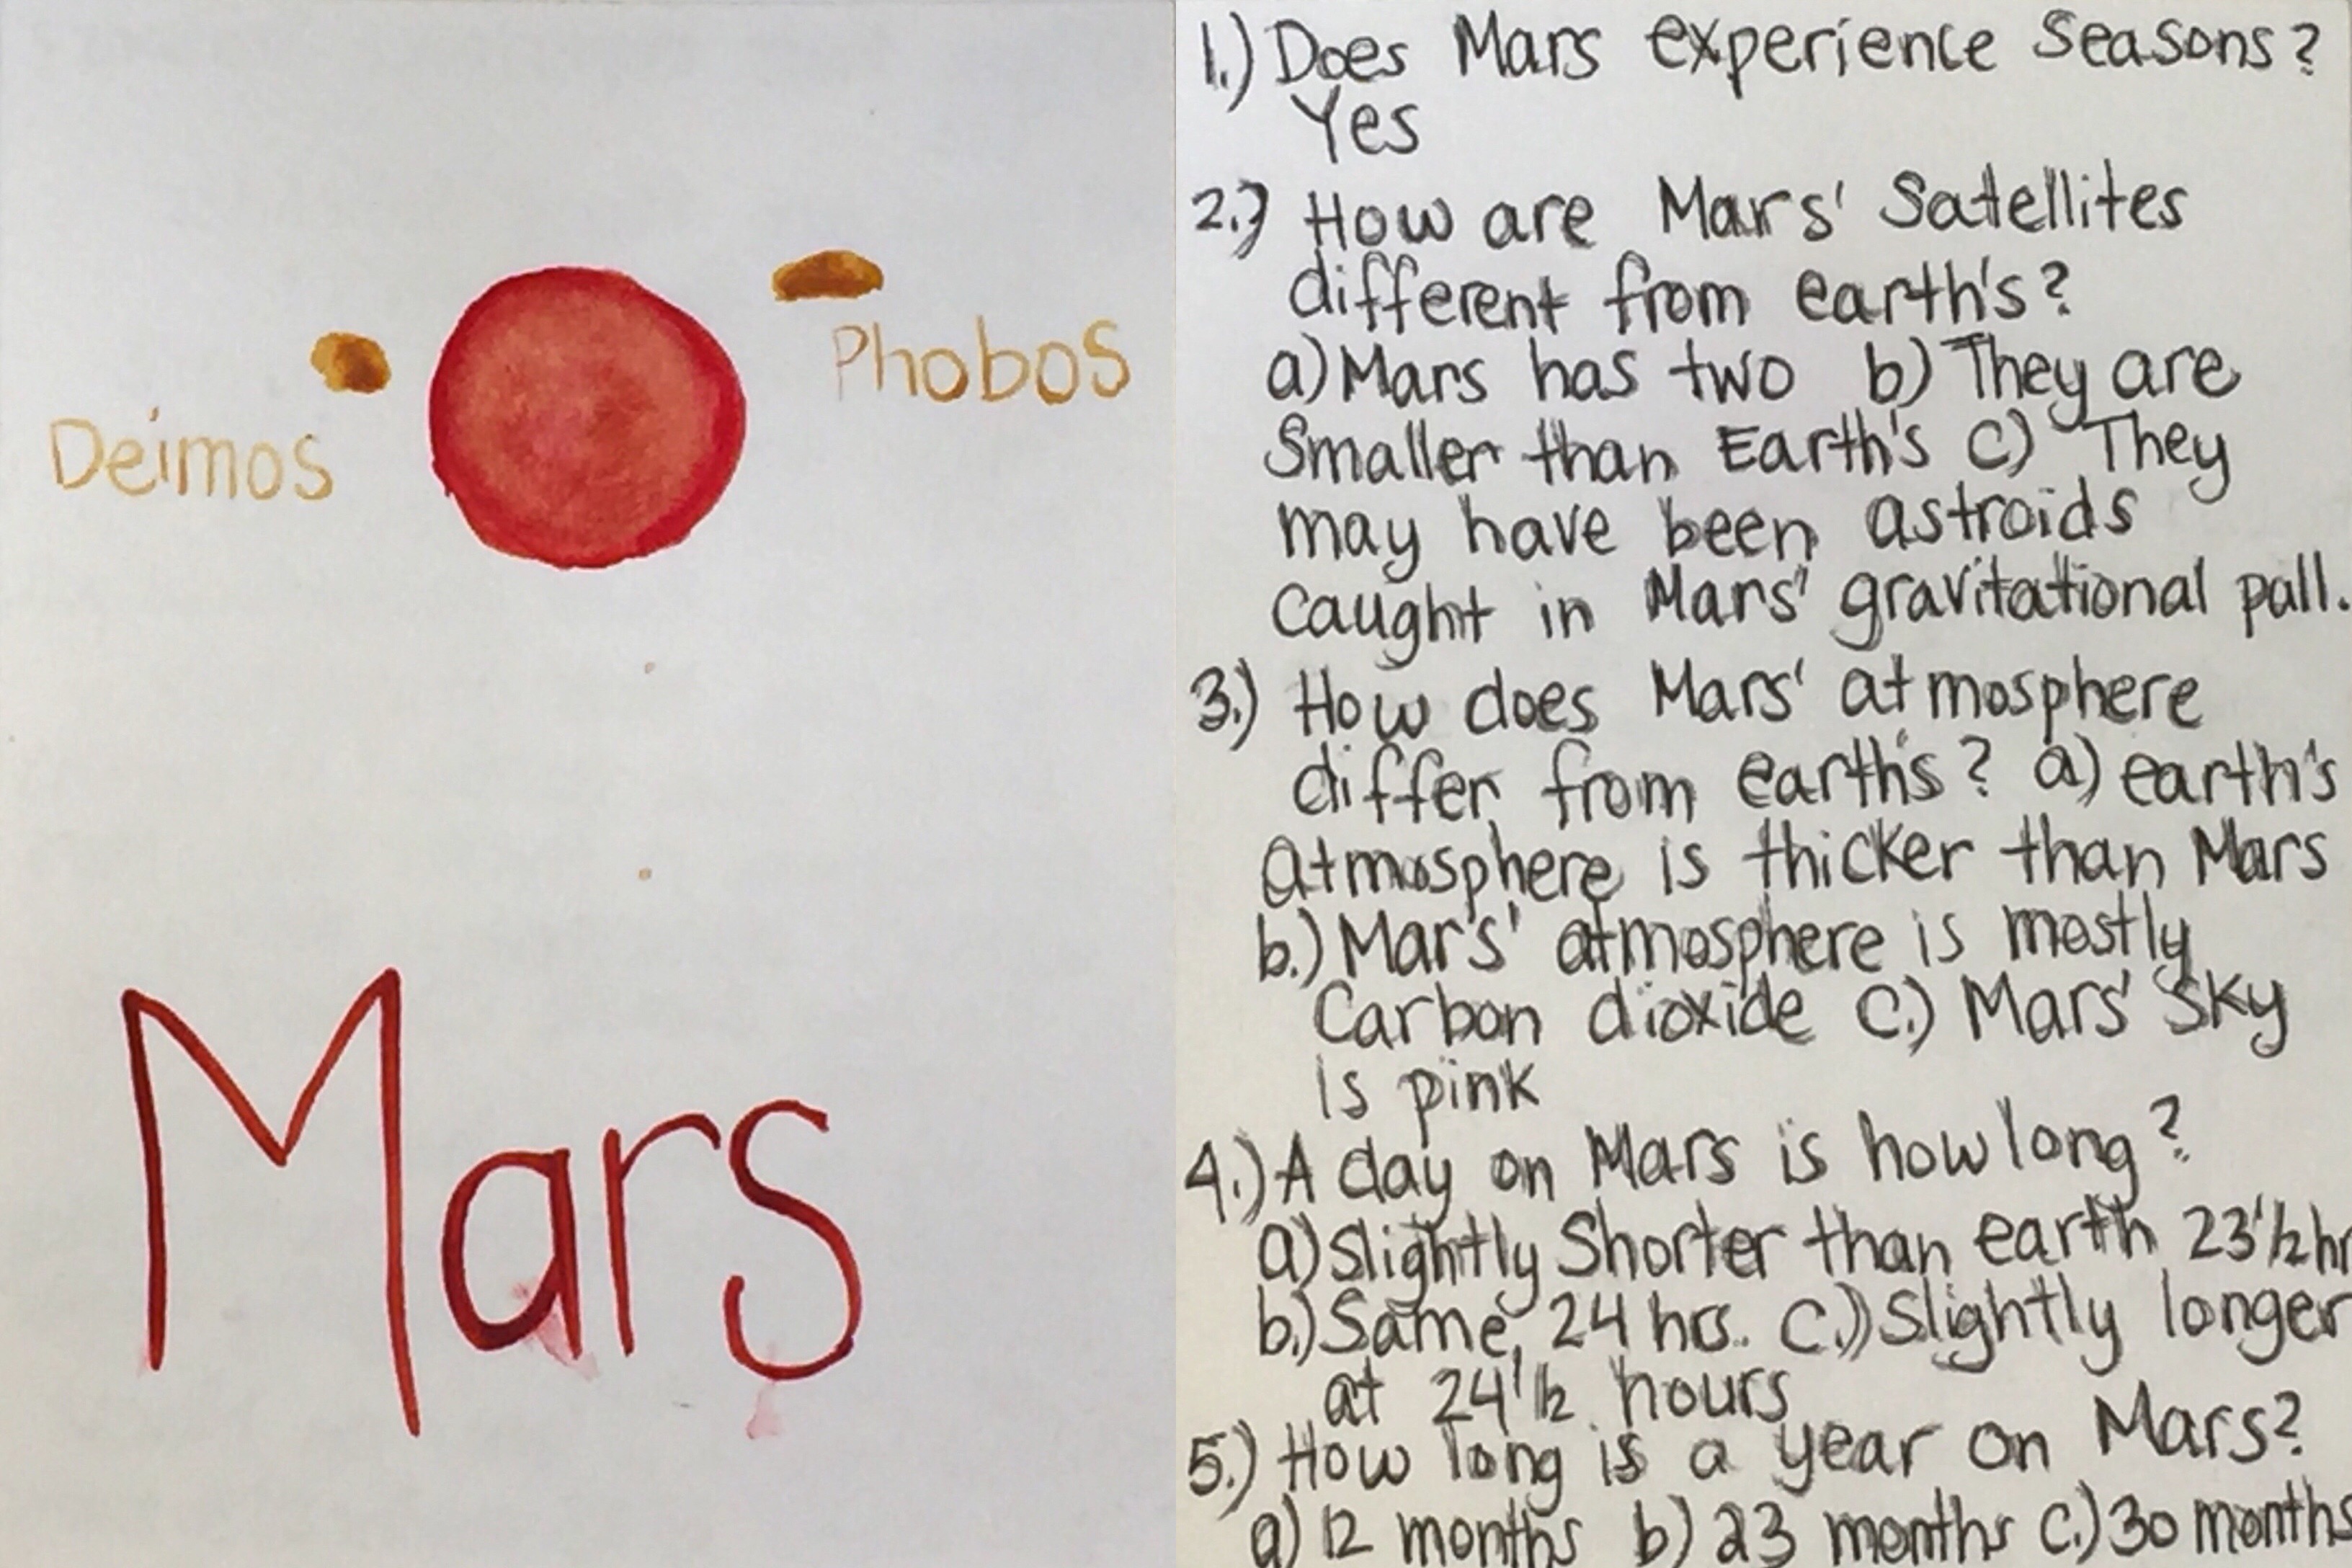 Phobos
Deimos
Mars
1.) Does Mars experience seasons?
Yes
2.) How are Mars' Satellites
different from earth's?
a) Mars has two b) They are
Smaller than Earth's c) They
may have been astroids
caught in Mars' gravitational pall.
3.) How does Mars' atmosphere
differ from earth's? a) earth's
atmosphere is thicker than Mars
b.) Mar's' atmosphere is mostly
Carbon dioxide C.) Mars' sky
is pink
4.) A day on Mars is how long?
a) slightly Shorter than earth 23 1/2 hr
b.) Same, 24 hrs. C.) Slightly longer
at 24 1/2 hours
5.) How long is a year on Mars?
a) 12 months b) 23 months c.) 30 months